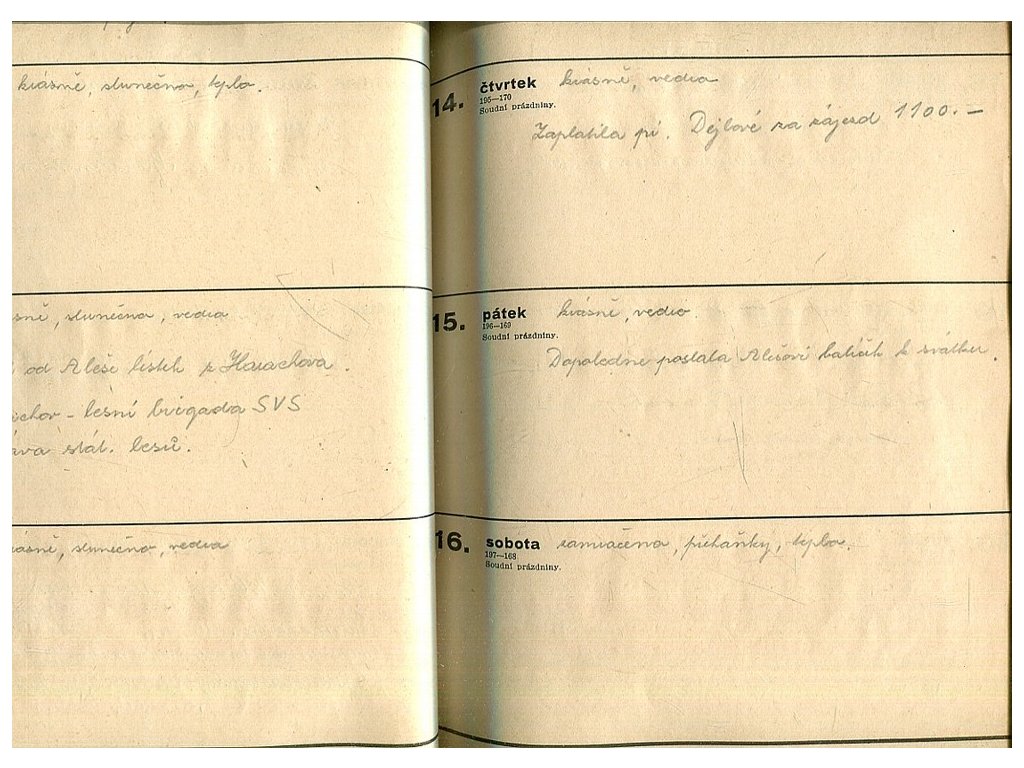 krásně, slunečno, teplo.
sně, slunečno, vedro
od Aleše lístek z Harachova.
chov - lesní brigada SVS
áva stát. lesů.
ásně, slunečno, vedro
14. čtvrtek krásně, vedro
195—170
Soudní prázdniny.
Zaplatila pí. Dejlové za zájezd 1100.—
15. pátek krásně, vedro.
196—169
Soudní prázdniny.
Dopoledne poslala Alešovi balíček k svátku.
16. sobota zamračeno, přeháňky, teplo.
197—168
Soudní prázdniny.